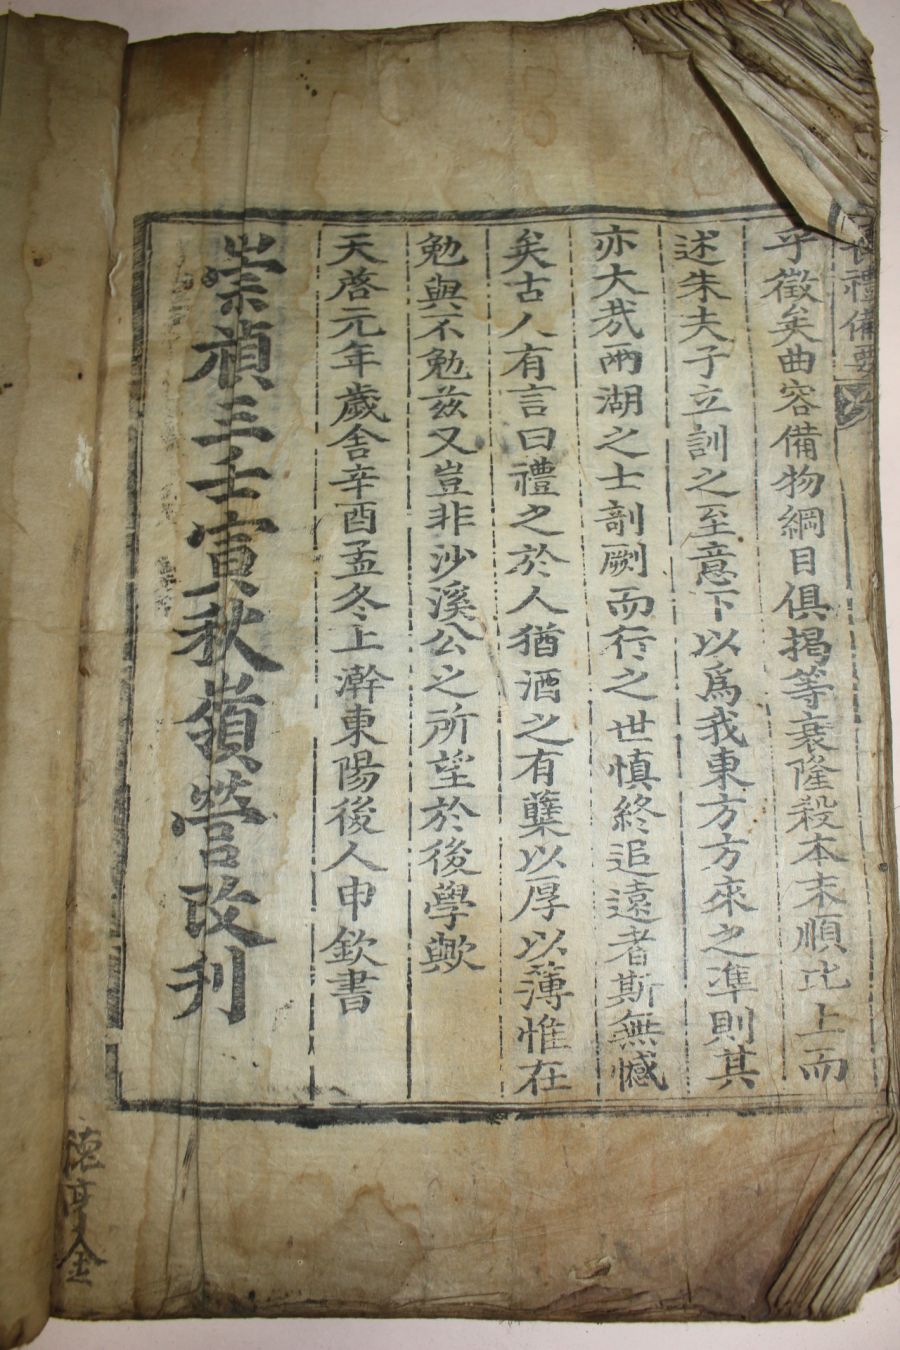 禮備要
乎徵矣曲容備物綱目俱揭等衰隆殺本末順比上而
述朱夫子立訓之至意下以爲我東方方來之準則其
亦大哉兩湖之士剞劂而行之世愼終追遠者斯無憾
矣古人有言曰禮之於人猶酒之有蘖以厚以薄惟在
勉與不勉茲又豈非沙溪公之所望於後學歟
天啓元年歲舍辛酉孟冬上澣東陽後人申欽書
崇禎三壬寅秋嶺營改刊